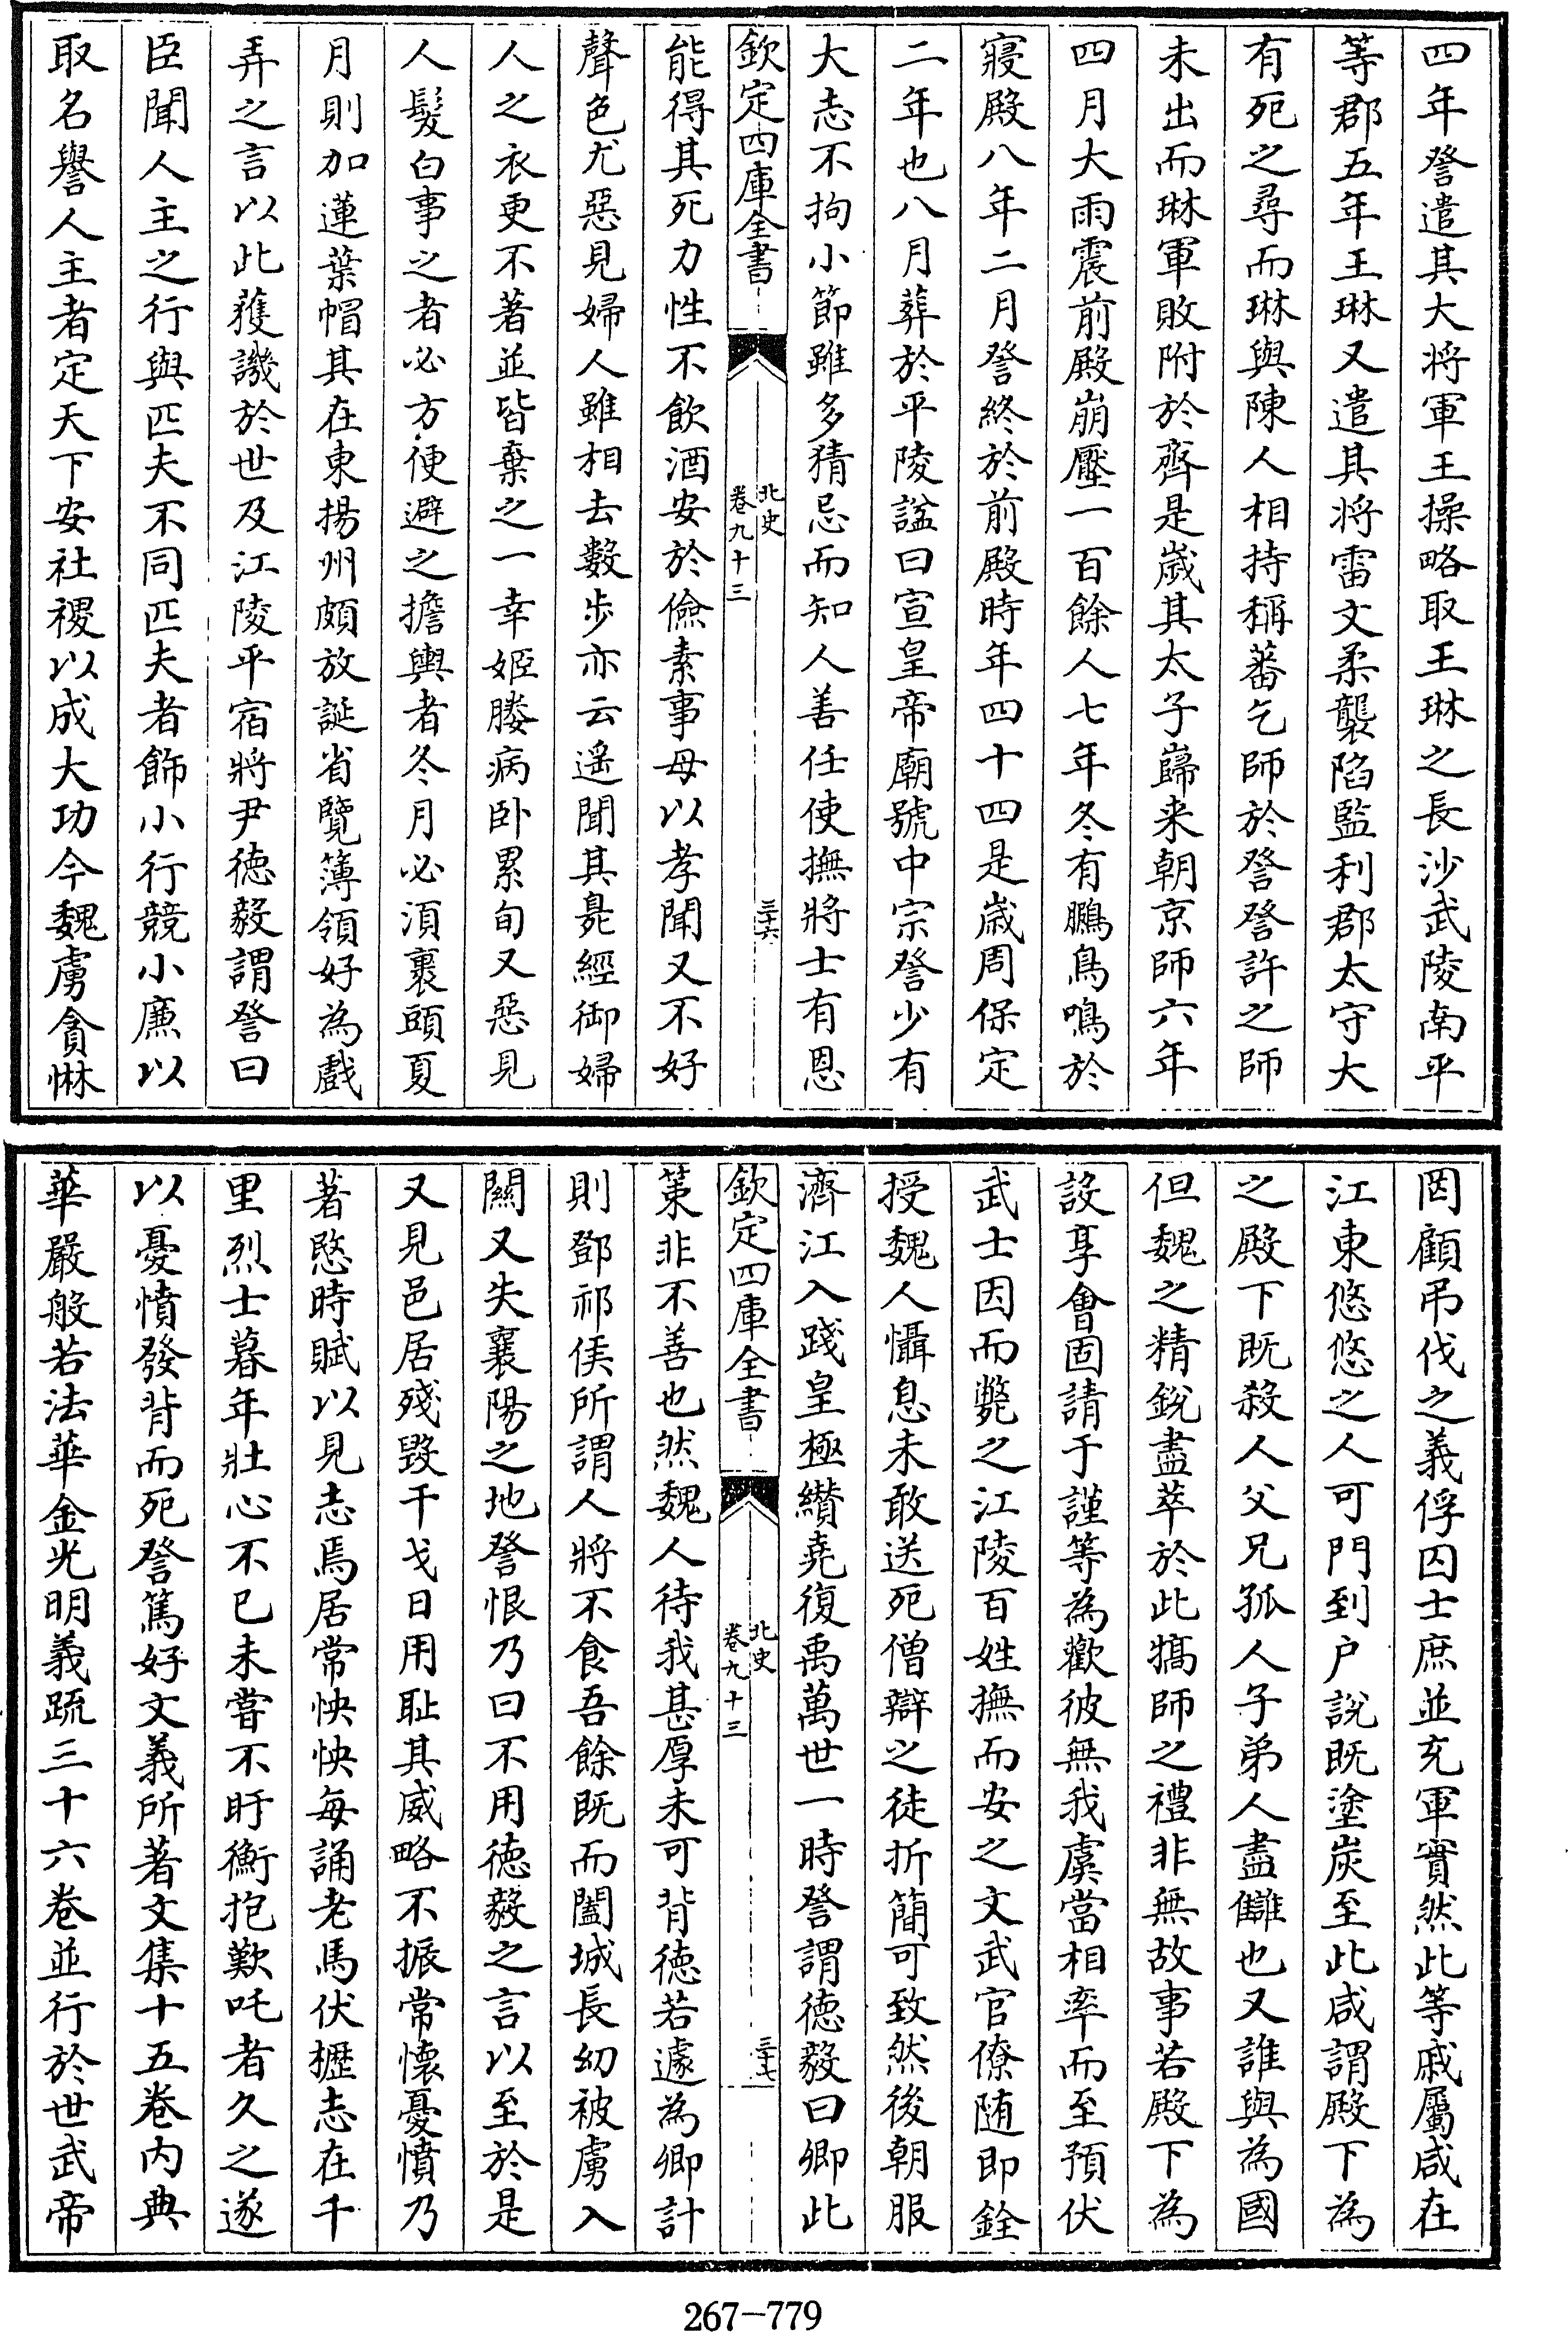 四年詧遣其大将軍王操略取王琳之長沙武陵南平
等郡五年王琳又遣其将雷文柔襲陷監利郡太守大
有死之尋而琳與陳人相持稱蕃乞師於詧詧許之師
未出而琳軍敗附於齊是嵗其太子巋来朝京師六年
四月大雨震前殿崩壓一百餘人七年冬有鵩鳥鳴於
寢殿八年二月詧終於前殿時年四十四是嵗周保定
二年也八月葬於平陵諡曰宣皇帝廟號中宗詧少有
大志不拘小節雖多猜忌而知人善任使撫將士有恩
欽定四庫全書
北史
卷九十三
三十六
能得其死力性不飲酒安於儉素事母以孝聞又不好
聲色尤惡見婦人雖相去數步亦云遥聞其臰經御婦
人之衣更不著並皆棄之一幸姬媵病卧累旬又惡見
人髮白事之者必方便避之擔輿者冬月必湏裹頭夏
月則加蓮葉帽其在東揚州頗放誕省覽簿領好為戲
弄之言以此獲譏於世及江陵平宿將尹德毅謂詧曰
臣聞人主之行與匹夫不同匹夫者飾小行競小亷以
取名譽人主者定天下安社稷以成大功今魏虜貪惏
罔顧弔伐之義俘囚士庶並充軍實然此等戚屬咸在
江東悠悠之人可門到户說既塗炭至此咸謂殿下為
之殿下既殺人父兄孤人子弟人盡讎也又誰與為國
但魏之精銳盡萃於此犒師之禮非無故事若殿下為
設享會固請于謹等為歡彼無我虞當相率而至預伏
武士因而斃之江陵百姓撫而安之文武官僚随即銓
授魏人懾息未敢送死僧辯之徒折簡可致然後朝服
濟江入踐皇極纘堯復禹萬世一時詧謂德毅曰卿此
欽定四庫全書
北史
卷九十三
三十七
策非不善也然魏人待我甚厚未可背德若遽為卿計
則鄧祁侯所謂人將不食吾餘既而闔城長幼被虜入
關又失襄陽之地詧恨乃曰不用德毅之言以至於是
又見邑居殘毀干戈日用耻其威略不振常懷憂憤乃
著愍時賦以見志焉居常怏怏每誦老馬伏櫪志在千
里烈士暮年壯心不已未嘗不盱衡抱歎吒者久之遂
以憂憤發背而死詧篤好文義所著文集十五卷内典
華嚴般若法華金光明義疏三十六卷並行於世武帝
267-779